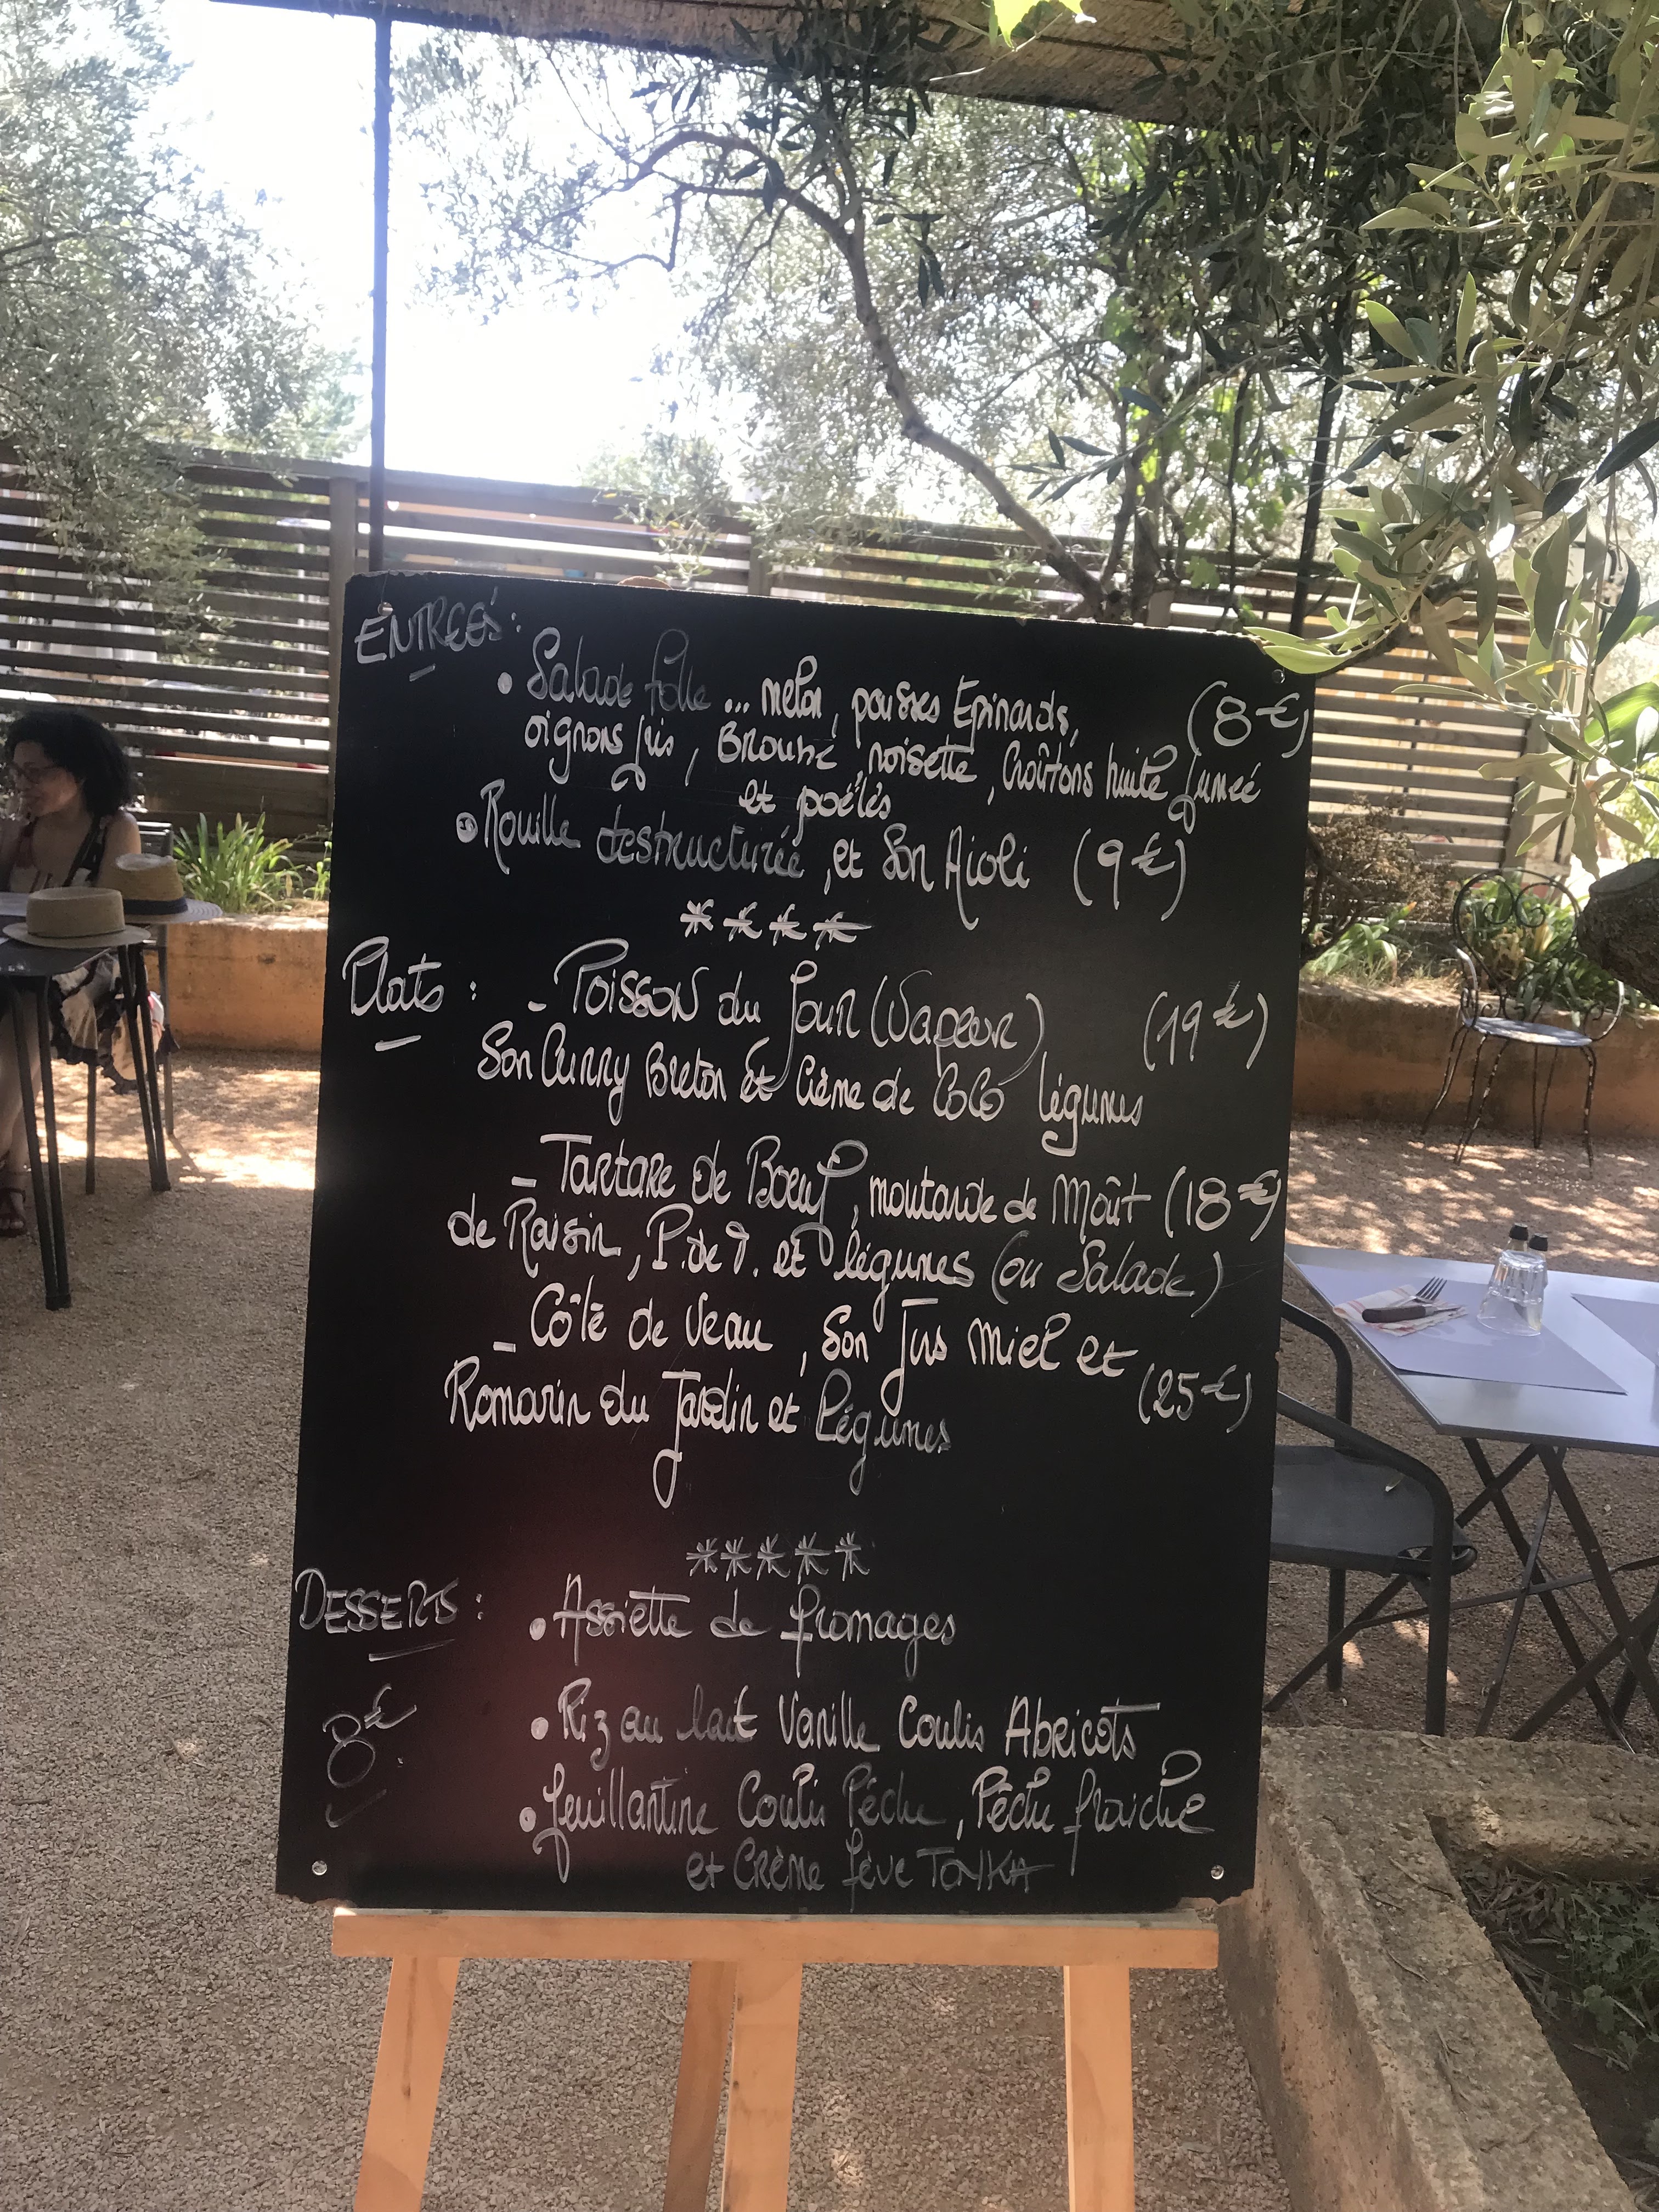 ENTRÉES :
• Salade folle ... melon, pousses Epinards, (8€)
oignons fris, Brousse, noisette, Croûtons huile fumée
et poélés
• Rouille destructurée, et Son Aioli (9€)
****
Plats : - Poisson du Jour (Vapeur) (19€)
Son Curry Breton et Crème de CoCo légumes
- Tartare de Boeuf, moutarde de Moût (18€)
de Raisin, P. de T. et légumes (ou Salade)
- Côte de Veau, Son Jus Miel et
Romarin du Jardin et Légumes (25€)
*****
DESSERTS : • Assiette de fromages
8€ • Riz au lait Vanille Coulis Abricots
• feuillantine Coulis Pêche, Pêche fraiche
et Crème fève TONKA